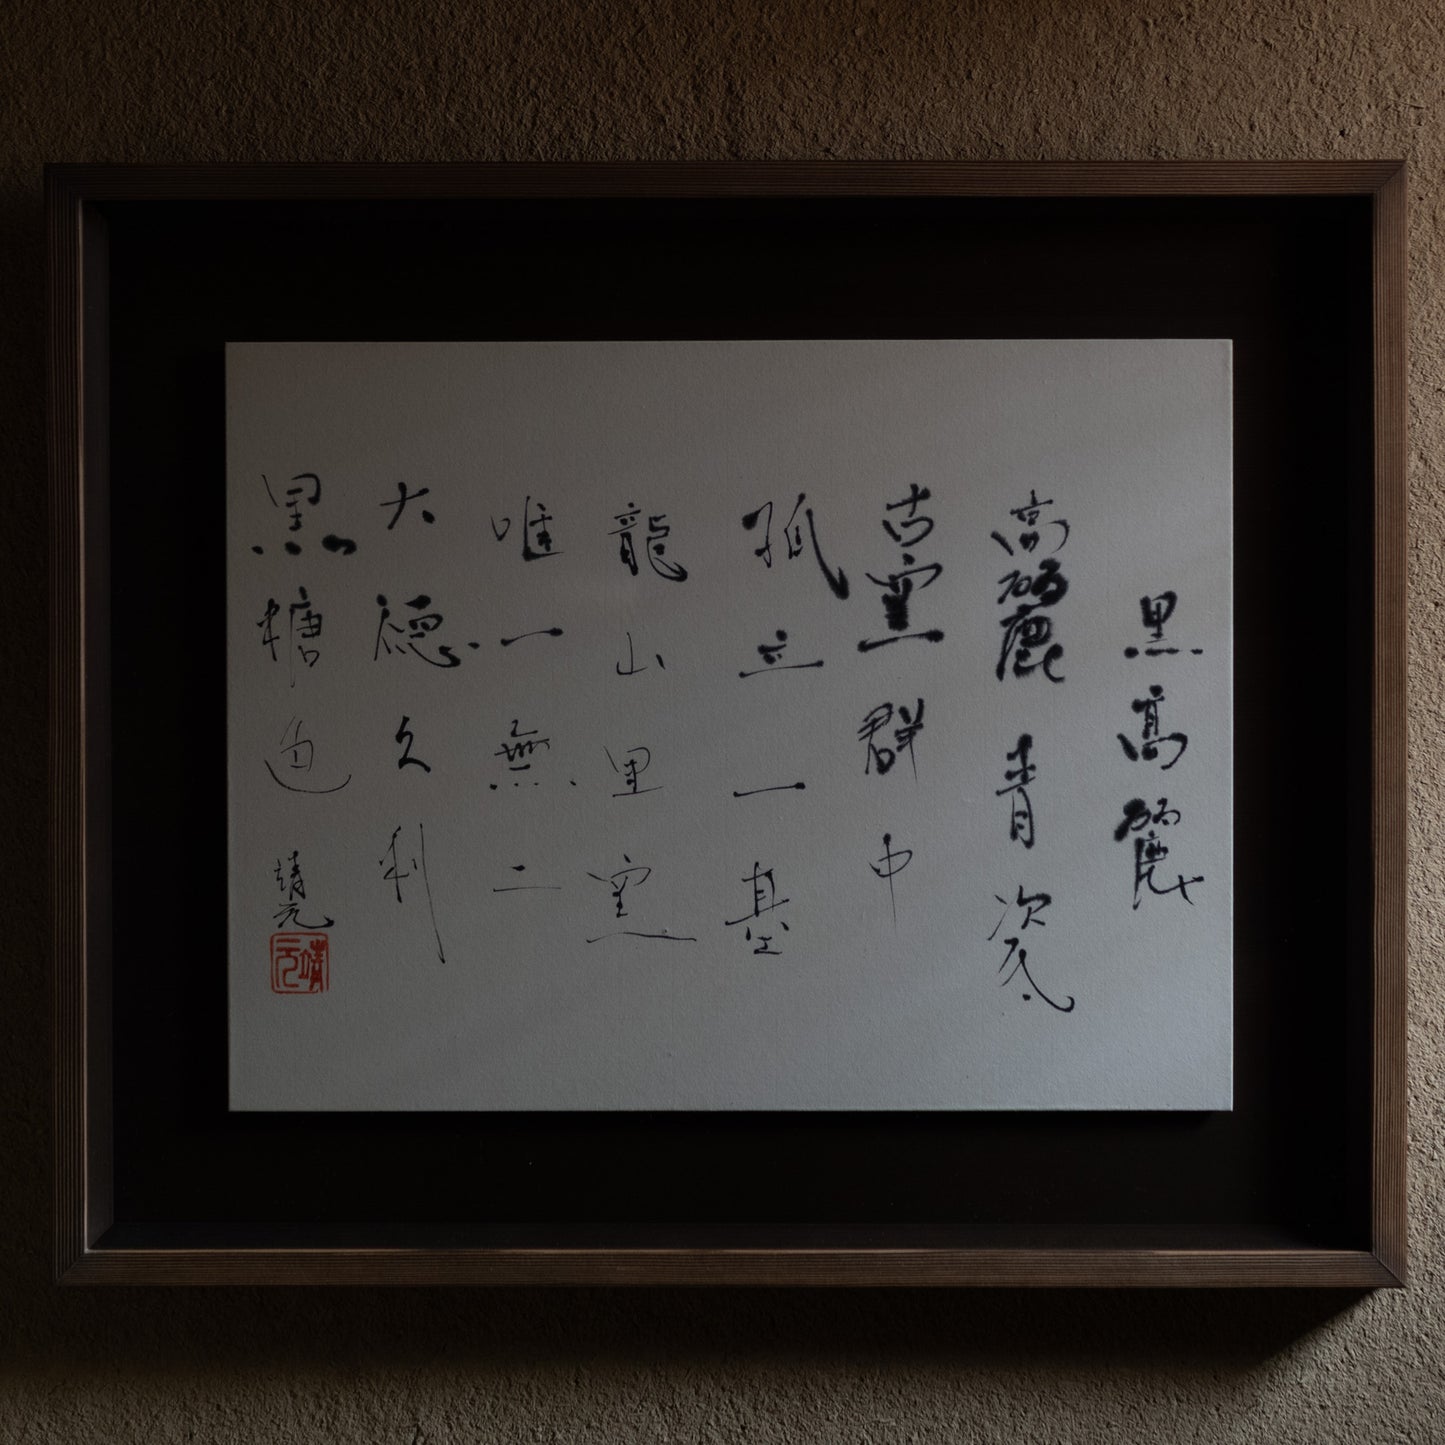 黒高麗
高麗青瓷
古窯群中
孤立一基
龍山里窯
唯一無二
大徳久利
黒糖色
靖元
靖元